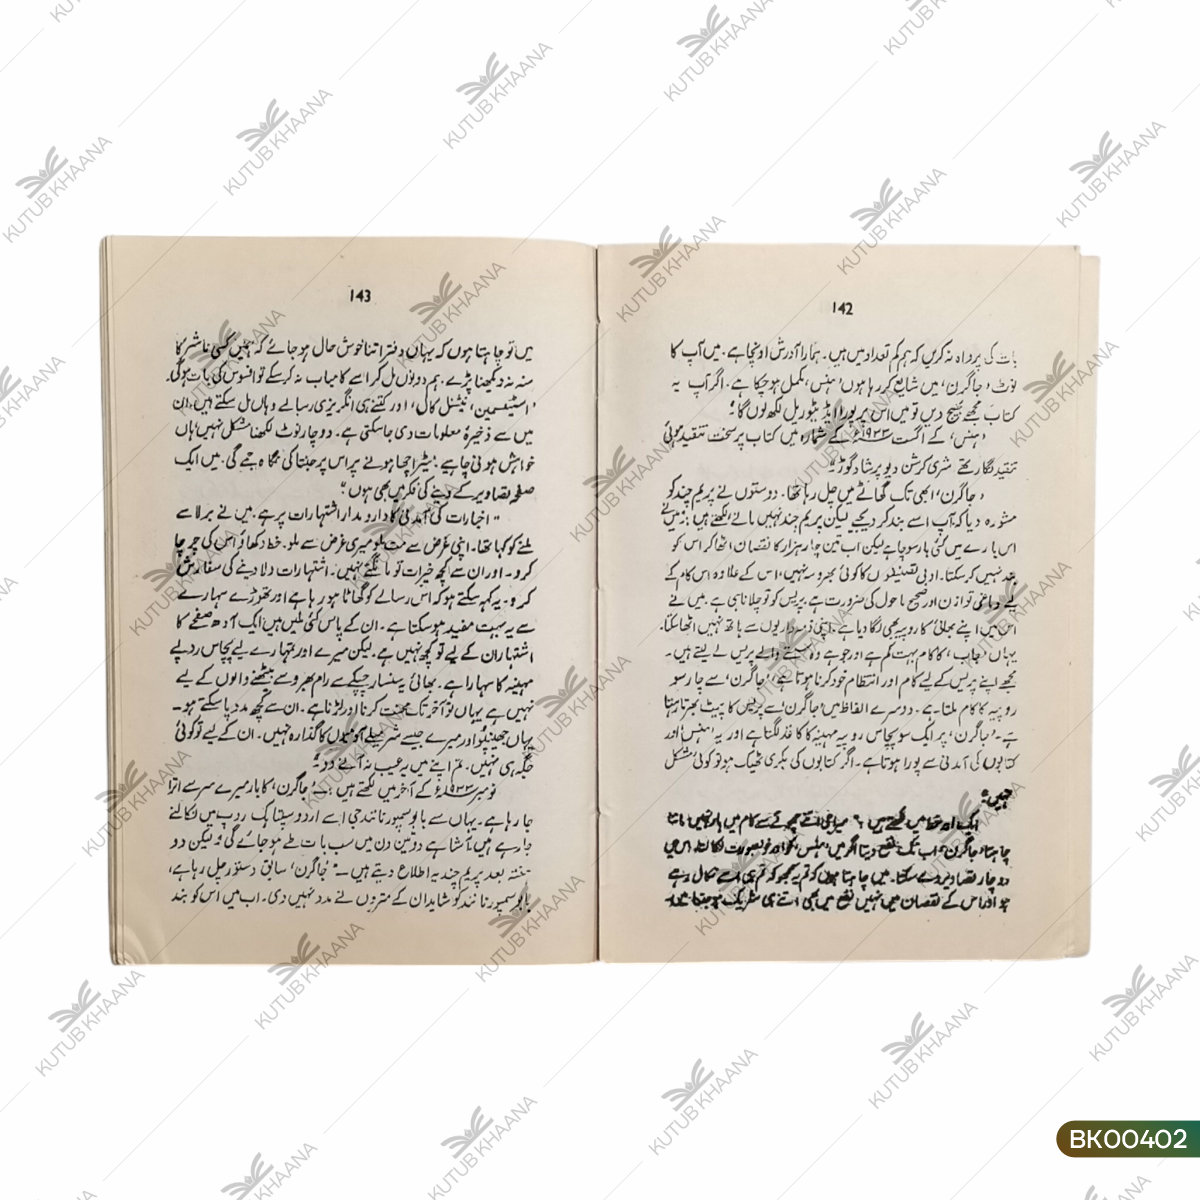 142
بات کی پرواہ نہ کریں کہ ہم کم تعداد میں ہیں۔ ہمارا آدرش اونچا ہے۔ میں آپ کا
نوٹ 'جاگرن' میں شایع کر رہا ہوں 'ہنس' مکمل ہو چکا ہے۔ اگر آپ یہ
کتاب مجھے بھیج دیں تو میں اس پر پورا ایڈیٹوریل لکھ لوں گا"۔
'ہنس' کے اگست ۱۹۳۳ء کے شمارہ میں کتاب پر سخت تنقید ہوئی
تنقید نگار تھے شری کرشن دیو پرشاد گوڑ"۔
'جاگرن' ابھی تک گھاٹے میں چل رہا تھا۔ دوستوں نے پریم چند کو
مشورہ دیا کہ آپ اسے بند کر دیجیے لیکن پریم چند نہیں مانے لکھتے ہیں: میں نے
اس بارے میں کئی بار سوچا ہے لیکن اب تین چار ہزار کا نقصان اٹھا کر اس کو
بند نہیں کر سکتا۔ ادبی تصنیفوں کا کوئی بھروسہ نہیں، اس کے علاوہ اس کام کے
لیے دماغی توازن اور صحیح ماحول کی ضرورت ہے۔ پریس کو تو چلانا ہی ہے۔ میں نے
اس میں اپنے بھائی کا روپیہ بھی لگا دیا ہے۔ اپنی ذمہ داریوں سے ہاتھ نہیں اٹھا سکتا۔
یہاں 'جاب' کا کام بہت کم ہے اور جو ہے وہ سستے والے پریس لے لیتے ہیں۔
مجھے اپنے پریس کے لیے کام اور انتظام خود کرنا ہوتا ہے، 'جاگرن' سے چار سو
روپیہ کا کام ملتا ہے۔ دوسرے الفاظ میں 'جاگرن' سے پریس کا پیٹ بھرتا رہتا
ہے۔ 'جاگرن' پر ایک سو پچاس روپیہ مہینہ کا کاغذ لگتا ہے اور یہ 'ہنس' اور
کتابوں کی آمدنی سے پورا ہوتا ہے۔ اگر کتابوں کی بکری ٹھیک ہو تو کوئی مشکل
نہیں"۔
ایک اور خط میں لکھتے ہیں
چاہتا، جاگرن، اب تک نفع دیتا اگر میں 'ہنس' کو اور خوبصورت نکالتا، اس میں
دو چار تصاویر دے سکتا۔ میں چاہتا ہوں کہ تم یہ سمجھو کہ تم ہی اسے نکال رہے
ہو اور اس کے نقصان میں نہیں نفع میں بھی اتنے ہی شریک ہو جتنا میں۔
143
میں تو چاہتا ہوں کہ یہاں دفتر اتنا خوش حال ہو جائے کہ ہمیں کسی ناشر کا
منہ نہ دیکھنا پڑے۔ ہم دونوں مل کر اسے کامیاب نہ کر سکے تو افسوس کی بات ہوگی۔
'اسٹیٹسمین'، 'نیشنل کال'، اور کتنے ہی انگریزی رسالے وہاں مل سکتے ہیں، ان
میں سے ذخیرۂ معلومات دی جا سکتی ہے۔ دو چار نوٹ لکھنا مشکل نہیں، ہاں
خواہش ہونی چاہیے، میٹر اچھا ہونے پر اس پر جنتا کی نگاہ جمے گی۔ میں ایک
صفحہ تصاویر کے دینے کی فکر میں بھی ہوں"۔
"اخبارات کی آمدنی کا دارومدار اشتہارات پر ہے۔ میں نے برلا سے
ملنے کو کہا تھا۔ اپنی غرض سے مت ملو میری غرض سے ملو۔ خط دکھاؤ اس کی چرچا
کرو۔ اور ان سے کچھ خیرات تو مانگتے نہیں۔ اشتہارات دلا دینے کی سفارش
کرو۔ یہ کہہ سکتے ہو کہ اس رسالے کو گھاٹا ہو رہا ہے اور تھوڑے سہارے
سے یہ بہت مفید ہو سکتا ہے۔ ان کے پاس کئی ملیں ہیں ایک آدھ صفحے کا
اشتہار ان کے لیے تو کچھ نہیں ہے۔ لیکن میرے اور تمہارے لیے پچاس روپے
مہینہ کا سہارا ہے۔ بھائی یہ سنسار چپکے سے رام بھروسے بیٹھنے والوں کے لیے
نہیں ہے یہاں تو آخر تک محنت کرنا اور لڑنا ہے۔ ان سے کچھ مدد پا سکتے ہو۔
یہاں جھینپو اور میرے جیسے شرمیلے آدمیوں کا گذارہ نہیں۔ ان کے لیے تو کوئی
جگہ ہی نہیں۔ تم اپنے میں یہ عیب نہ آنے دو"۔
نومبر ۱۹۳۳ء کے آخر میں لکھتے ہیں:۔ "جاگرن، کا بار میرے سر سے اترا
جا رہا ہے۔ یہاں سے بابو سمپورنانند جی اسے اردو سپتاہک روپ میں نکالنے
جا رہے ہیں۔ آشا ہے دو تین دن میں سب بات طے ہو جائے گی" لیکن دو
ہفتہ بعد پریم چند یہ اطلاع دیتے ہیں:۔ "'جاگرن' سابق دستور چل رہا ہے،
بابو سمپورنانند کو شاید ان کے متروں نے مدد نہیں دی۔ اب میں اس کو بند
KUTUB KHAANA
BK00402